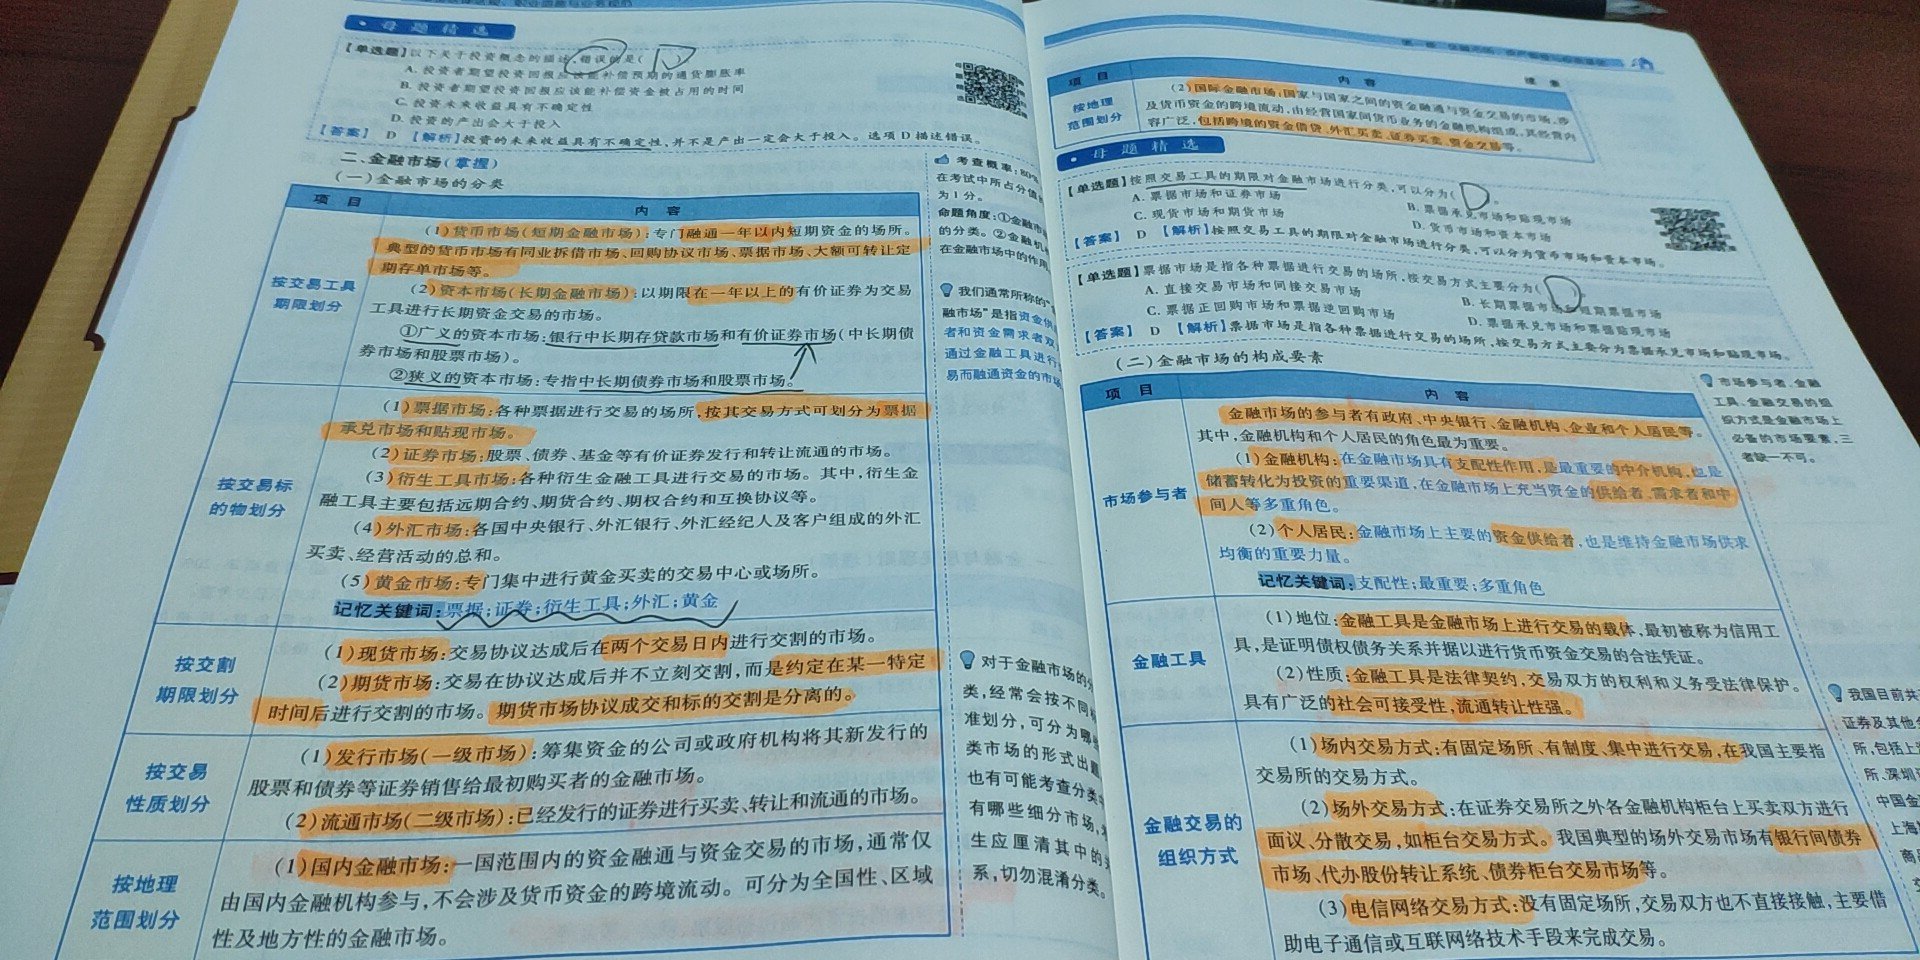 母题精选
【单选题】以下关于投资概念的描述,错误的是( D )
A. 投资者期望投资回报应该能补偿预期的通货膨胀率
B. 投资者期望投资回报应该能补偿资金被占用的时间
C. 投资未来收益具有不确定性
D. 投资的产出会大于投入
【答案】 D 【解析】投资的未来收益具有不确定性,并不是产出一定会大于投入。选项 D 描述错误。
二、金融市场(掌握)
(一)金融市场的分类
项 目 内 容
按交易工具
期限划分
(1)货币市场(短期金融市场):专门融通一年以内短期资金的场所。
典型的货币市场有同业拆借市场、回购协议市场、票据市场、大额可转让定
期存单市场等。
(2)资本市场(长期金融市场):以期限在一年以上的有价证券为交易
工具进行长期资金交易的市场。
①广义的资本市场:银行中长期存贷款市场和有价证券市场(中长期债
券市场和股票市场)。
②狭义的资本市场:专指中长期债券市场和股票市场。
按交易标
的物划分
(1)票据市场:各种票据进行交易的场所,按其交易方式可划分为票据
承兑市场和贴现市场。
(2)证券市场:股票、债券、基金等有价证券发行和转让流通的市场。
(3)衍生工具市场:各种衍生金融工具进行交易的市场。其中,衍生金
融工具主要包括远期合约、期货合约、期权合约和互换协议等。
(4)外汇市场:各国中央银行、外汇银行、外汇经纪人及客户组成的外汇
买卖、经营活动的总和。
(5)黄金市场:专门集中进行黄金买卖的交易中心或场所。
记忆关键词:票据;证券;衍生工具;外汇;黄金
按交割
期限划分
(1)现货市场:交易协议达成后在两个交易日内进行交割的市场。
(2)期货市场:交易在协议达成后并不立刻交割,而是约定在某一特定
时间后进行交割的市场。期货市场协议成交和标的交割是分离的。
按交易
性质划分
(1)发行市场(一级市场):筹集资金的公司或政府机构将其新发行的
股票和债券等证券销售给最初购买者的金融市场。
(2)流通市场(二级市场):已经发行的证券进行买卖、转让和流通的市场。
按地理
范围划分
(1)国内金融市场:一国范围内的资金融通与资金交易的市场,通常仅
由国内金融机构参与,不会涉及货币资金的跨境流动。可分为全国性、区域
性及地方性的金融市场。
考查概率:80%
在考试中所占分值
为1分。
命题角度:①金融市
的分类。②金融机
在金融市场中的作用
我们通常所称的“
融市场”是指资金供
者和资金需求者双
通过金融工具进行
易而融通资金的市场
对于金融市场的分
类,经常会按不同
准划分,可分为哪
类市场的形式出题
也有可能考查分类
有哪些细分市场,
生应厘清其中的
系,切勿混淆分类。
续表
项 目 内 容
按地理
范围划分
(2)国际金融市场:国家与国家之间的资金融通与资金交易的市场,涉
及货币资金的跨境流动,由经营国家间货币业务的金融机构组成,其经营内
容广泛,包括跨境的资金借贷、外汇买卖、证券买卖、资金交易等。
母题精选
【单选题】按照交易工具的期限对金融市场进行分类,可以分为( D )。
A. 票据市场和证券市场 B. 票据承兑市场和贴现市场
C. 现货市场和期货市场 D. 货币市场和资本市场
【答案】 D 【解析】按照交易工具的期限对金融市场进行分类,可以分为货币市场和资本市场。
【单选题】票据市场是指各种票据进行交易的场所,按交易方式主要分为( D )
A. 直接交易市场和间接交易市场 B. 长期票据市场和短期票据市场
C. 票据正回购市场和票据逆回购市场 D. 票据承兑市场和票据贴现市场
【答案】 D 【解析】票据市场是指各种票据进行交易的场所,按交易方式主要分为票据承兑市场和贴现市场。
(二)金融市场的构成要素
项 目 内 容
市场参与者
金融市场的参与者有政府、中央银行、金融机构、企业和个人居民等。
其中,金融机构和个人居民的角色最为重要。
(1)金融机构:在金融市场具有支配性作用,是最重要的中介机构,也是
储蓄转化为投资的重要渠道,在金融市场上充当资金的供给者、需求者和中
间人等多重角色。
(2)个人居民:金融市场上主要的资金供给者,也是维持金融市场供求
均衡的重要力量。
记忆关键词:支配性;最重要;多重角色
金融工具
(1)地位:金融工具是金融市场上进行交易的载体,最初被称为信用工
具,是证明债权债务关系并据以进行货币资金交易的合法凭证。
(2)性质:金融工具是法律契约,交易双方的权利和义务受法律保护。
具有广泛的社会可接受性,流通转让性强。
金融交易的
组织方式
(1)场内交易方式:有固定场所、有制度、集中进行交易,在我国主要指
交易所的交易方式。
(2)场外交易方式:在证券交易所之外各金融机构柜台上买卖双方进行
面议、分散交易,如柜台交易方式。我国典型的场外交易市场有银行间债券
市场、代办股份转让系统、债券柜台交易市场等。
(3)电信网络交易方式:没有固定场所,交易双方也不直接接触,主要借
助电子通信或互联网络技术手段来完成交易。
市场参与者、金融
工具、金融交易的组
织方式是金融市场上
必备的市场要素,三
者缺一不可。
我国目前共
证券及其他
所,包括上
所、深圳
中国金
上海
商